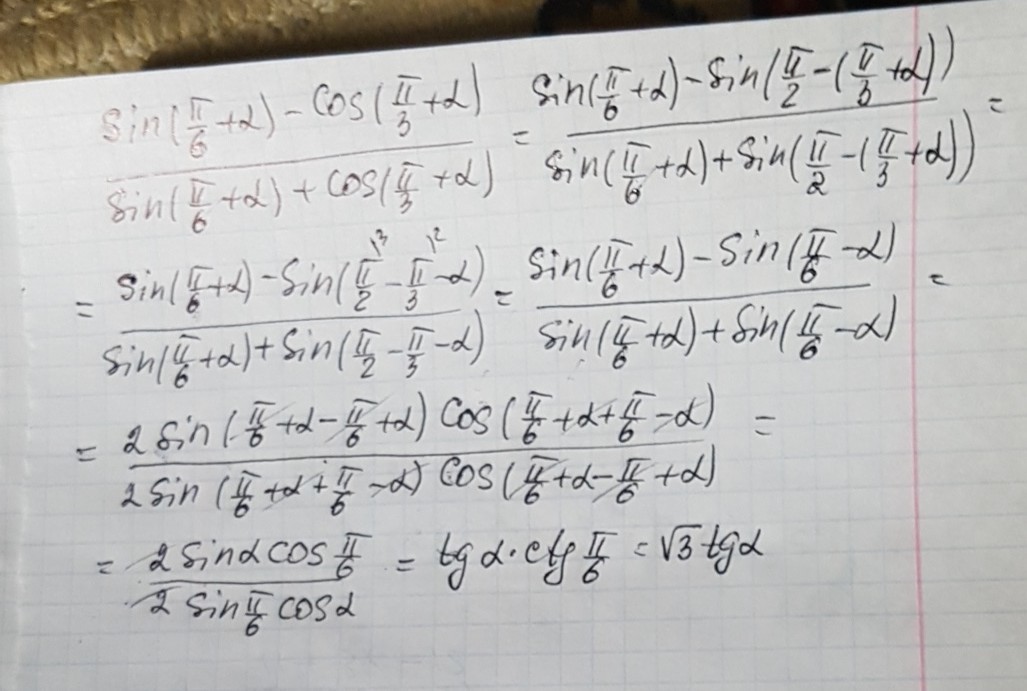 (sin(π/6+α)-cos(π/3+α))/(sin(π/6+α)+cos(π/3+α)) = (sin(π/6+α)-sin(π/2-(π/3+α)))/(sin(π/6+α)+sin(π/2-(π/3+α))) =
= (sin(π/6+α)-sin(π/2^{13}-π/3^{12}-α))/(sin(π/6+α)+sin(π/2-π/3-α)) = (sin(π/6+α)-sin(π/6-α))/(sin(π/6+α)+sin(π/6-α)) =
= (2sin(π/6+α-π/6+α)cos(π/6+α+π/6-α))/(2sin(π/6+α+π/6-α)cos(π/6+α-π/6+α)) =
= (2sinαcosπ/6)/(2sinπ/6cosα) = tgα·ctgπ/6 = √3tgα